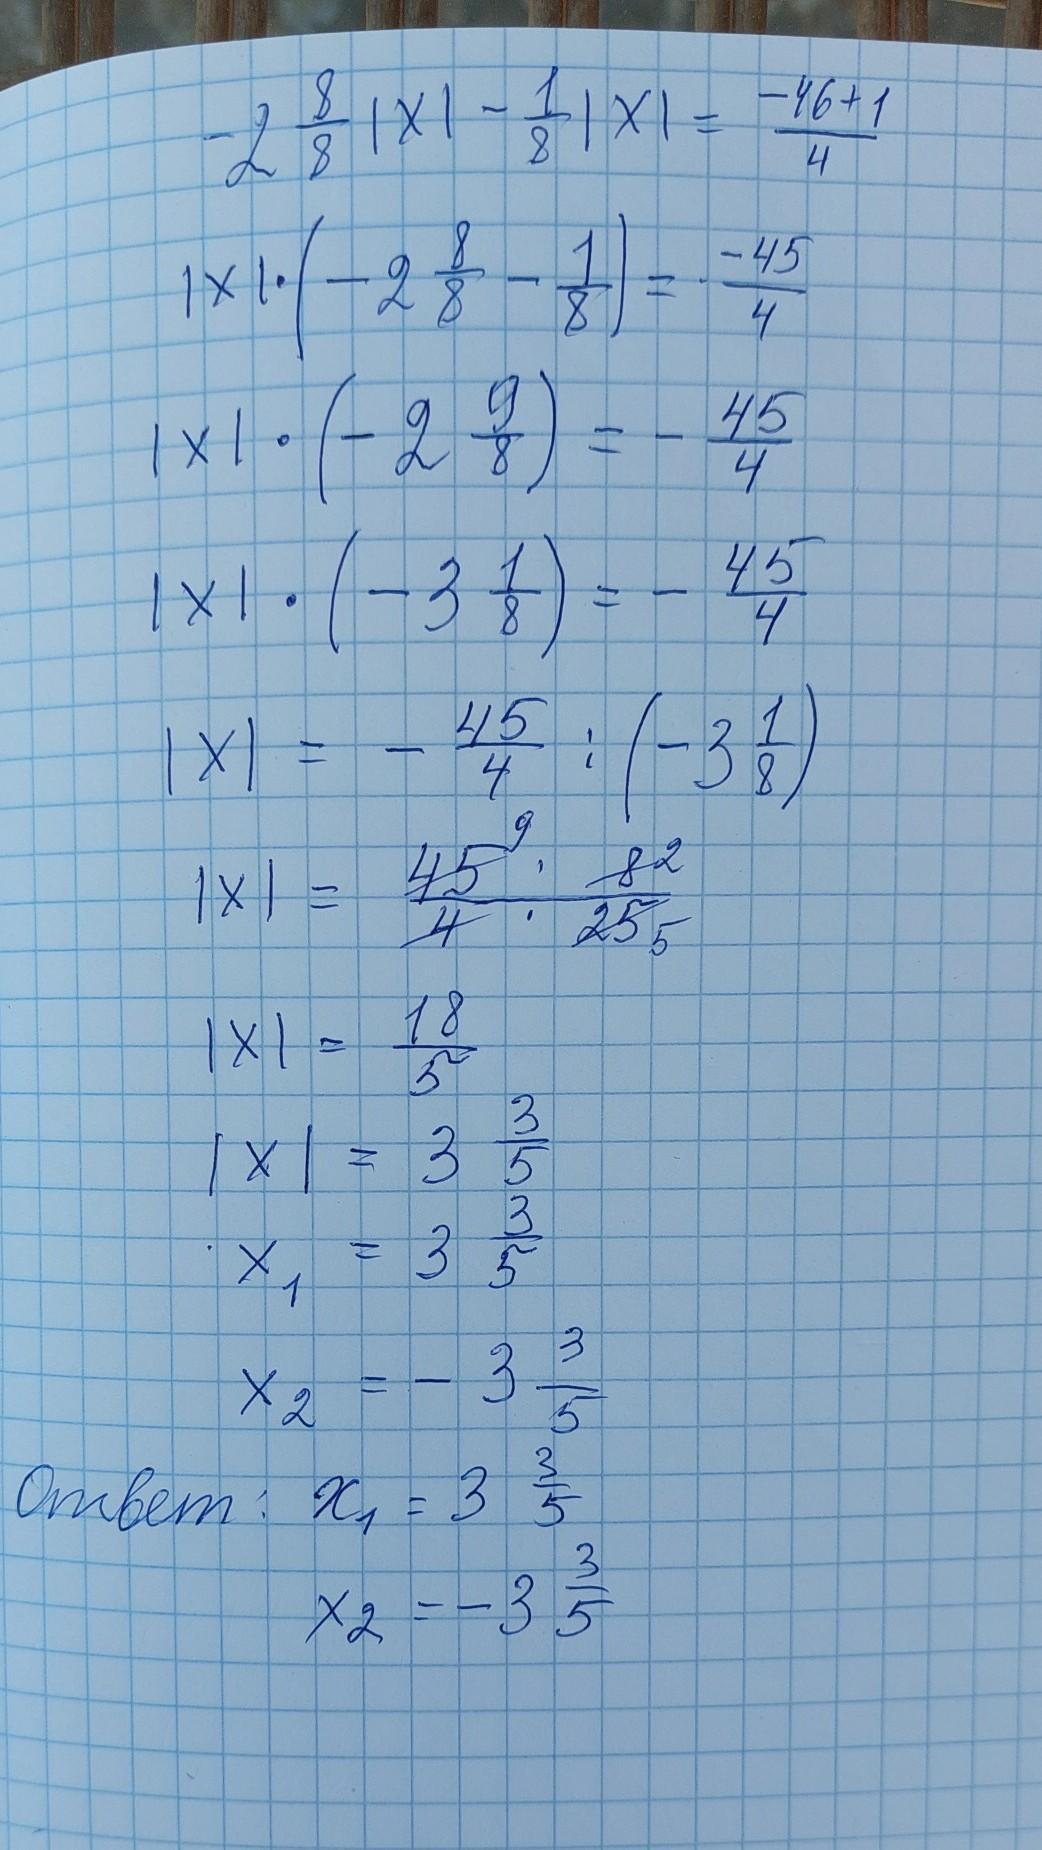 -2 8/8 |x| - 1/8 |x| = (-46+1)/4
|x|·(-2 8/8 - 1/8) = -45/4
|x|·(-2 9/8) = -45/4
|x|·(-3 1/8) = -45/4
|x| = -45/4 : (-3 1/8)
|x| = (45 9 · 8 2)/(4 · 25 5)
|x| = 18/5
|x| = 3 3/5
x₁ = 3 3/5
x₂ = -3 3/5
Ответ: x₁ = 3 3/5
x₂ = -3 3/5